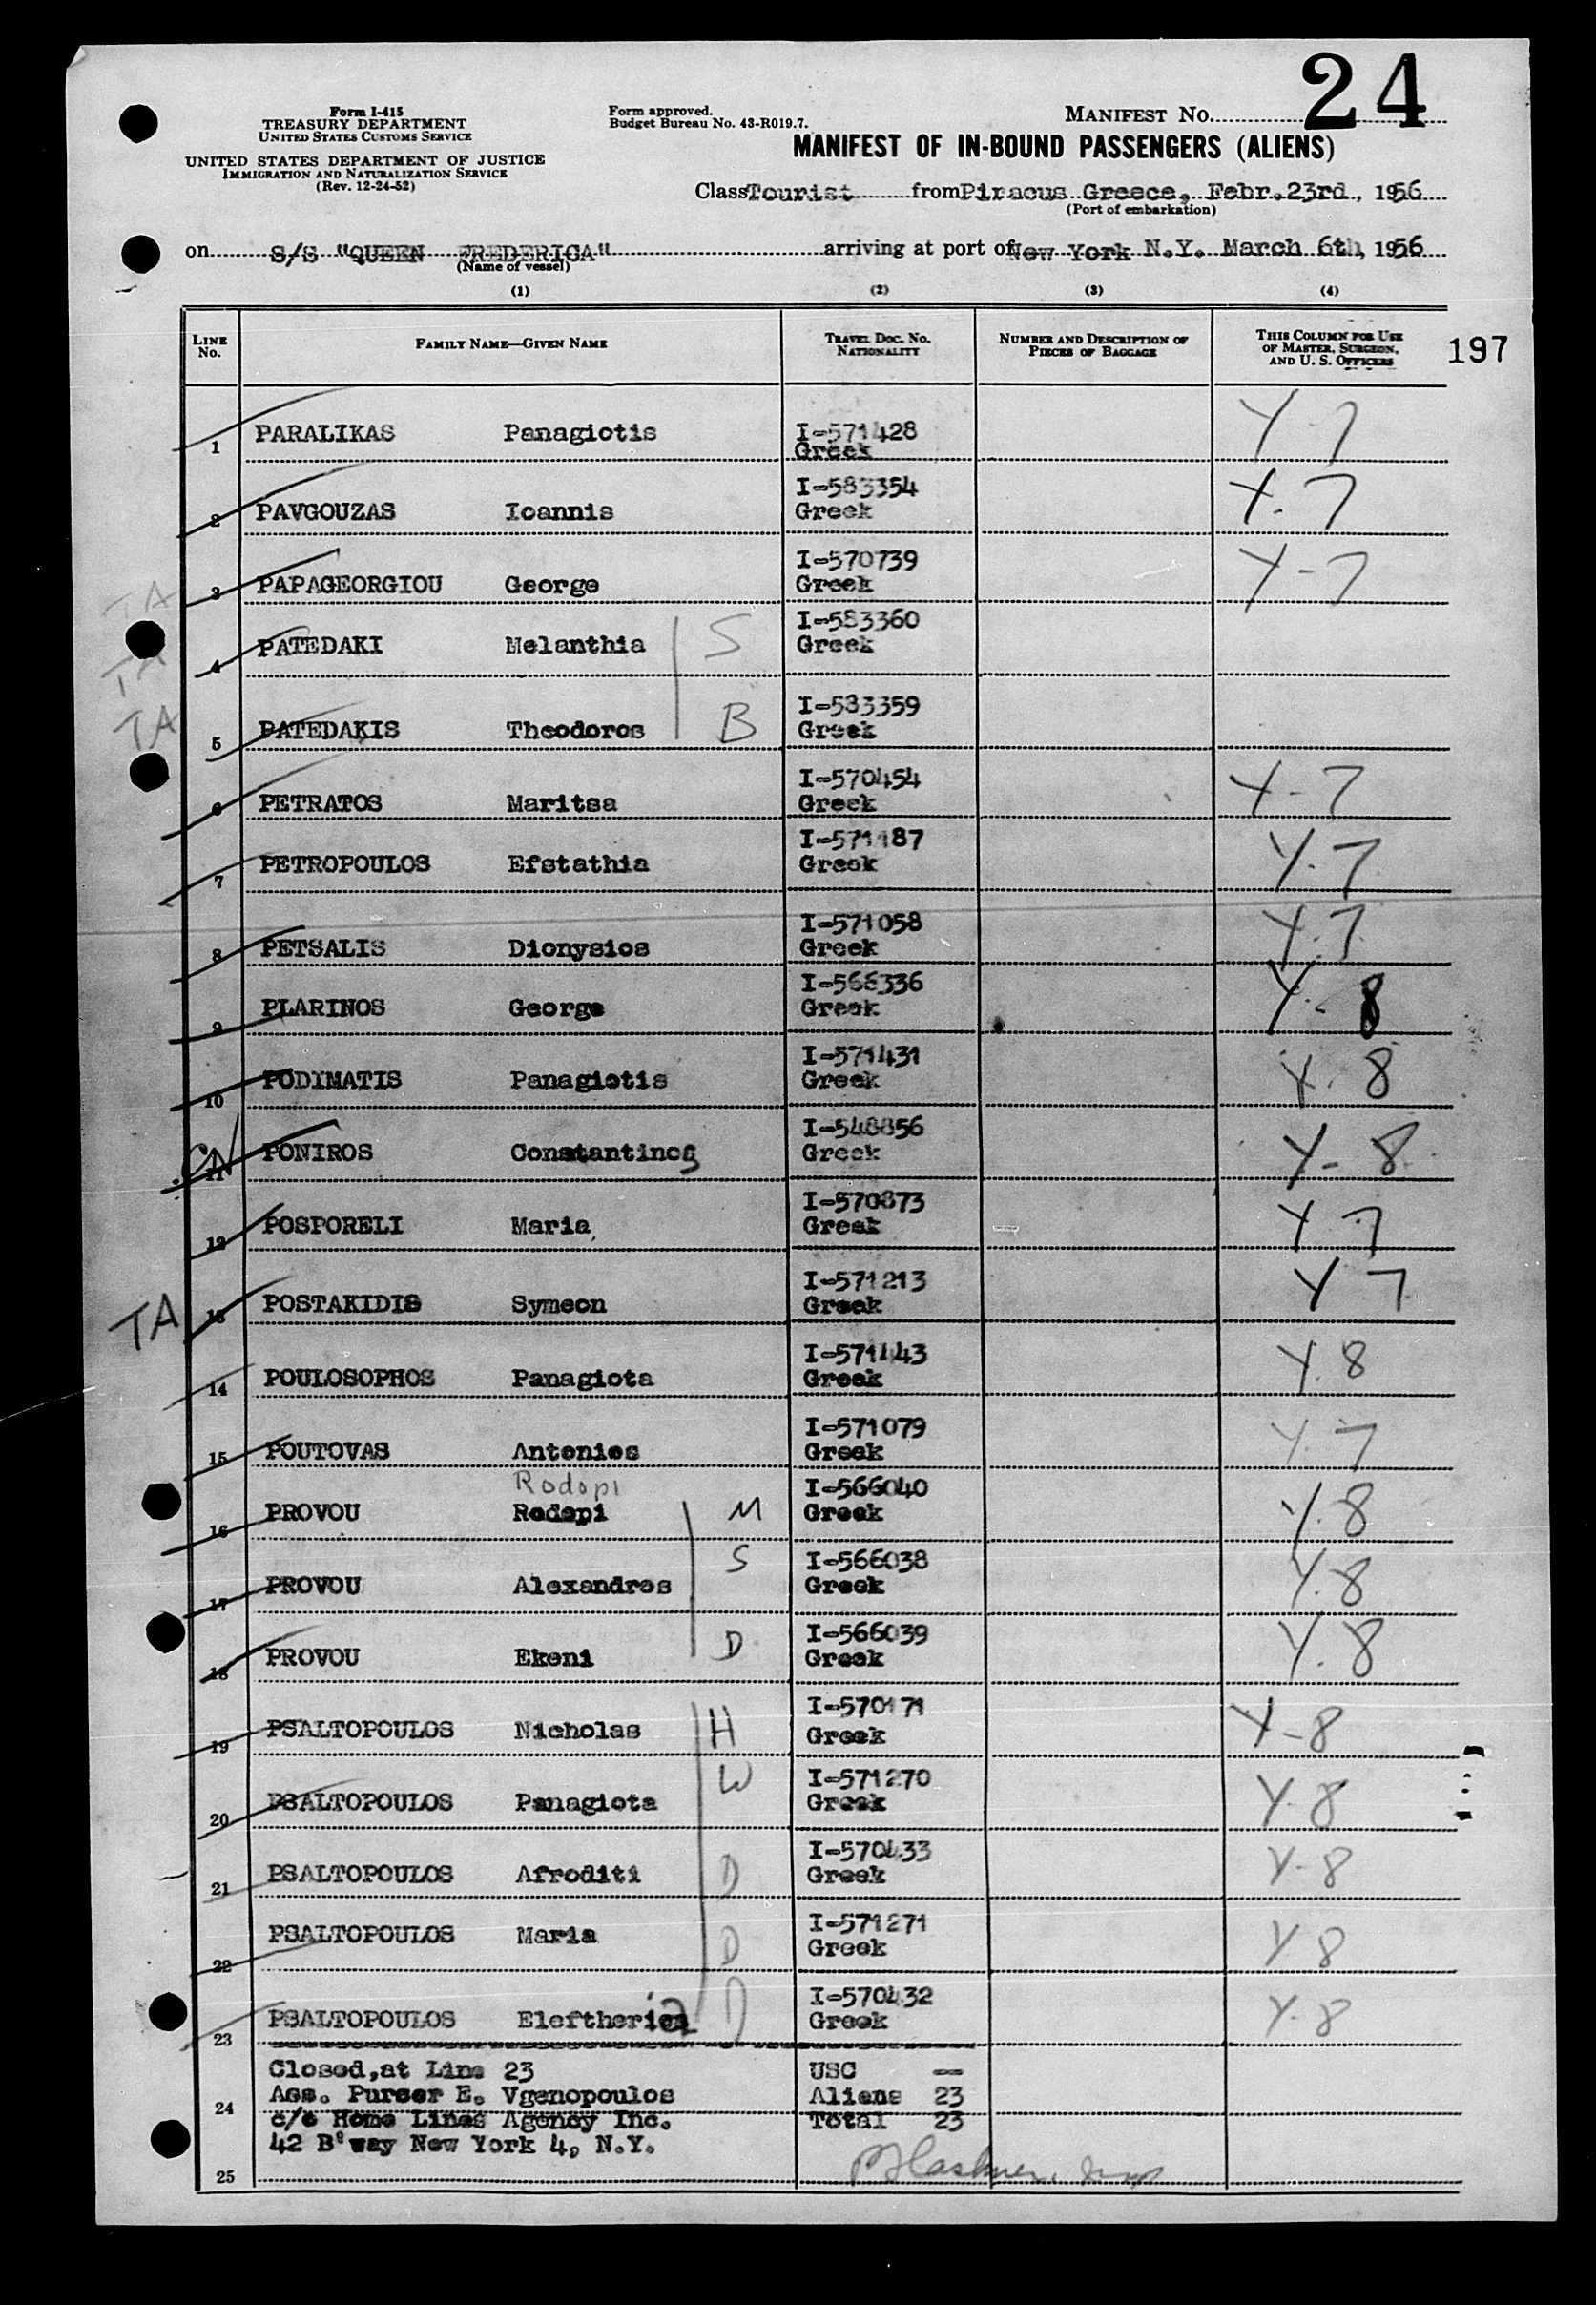 24
Form I-415
TREASURY DEPARTMENT
UNITED STATES CUSTOMS SERVICE
UNITED STATES DEPARTMENT OF JUSTICE
IMMIGRATION AND NATURALIZATION SERVICE
(Rev. 12-24-52)
Form approved.
Budget Bureau No. 43-R019.7.
MANIFEST NO.
MANIFEST OF IN-BOUND PASSENGERS (ALIENS)
Class Tourist from Piraeus Greece, Febr. 23rd, 1956
(Port of embarkation)
on S/S "QUEEN FREDERICA" arriving at port of New York N.Y. March 6th, 1956
(Name of vessel)
(1) (2) (3) (4)
LINE No. FAMILY NAME—GIVEN NAME TRAVEL DOC. NO. NATIONALITY NUMBER AND DESCRIPTION OF PIECES OF BAGGAGE THIS COLUMN FOR USE OF MASTER, SURGEON, AND U. S. OFFICERS 197
1 PARALIKAS Panagiotis I-571428 Greek Y-7
2 PAVGOUZAS Ioannis I-583354 Greek Y-7
TA 3 PAPAGEORGIOU George I-570739 Greek Y-7
TA 4 PATEDAKI Melanthia S I-583360 Greek
TA 5 PATEDAKIS Theodoros B I-583359 Greek
6 PETRATOS Maritsa I-570454 Greek Y-7
7 PETROPOULOS Efstathia I-571187 Greek Y-7
8 PETSALIS Dionysios I-571058 Greek Y-7
9 PLARINOS George I-566336 Greek Y-8
10 PODYMATIS Panagiotis I-571431 Greek Y-8
CN 11 PONIROS Constantinos I-548856 Greek Y-8
12 POSPORELI Maria I-570873 Greek Y 7
TA 13 POSTAKIDIS Symeon I-571213 Greek Y 7
14 POULOSOPHOS Panagiota I-571443 Greek Y.8
15 POUTOVAS Antonios I-571079 Greek Y.7
Rodopi
16 PROVOU Rodopi M I-566040 Greek Y.8
17 PROVOU Alexandros S I-566038 Greek Y.8
18 PROVOU Ekeni D I-566039 Greek Y.8
19 PSALTOPOULOS Nicholas H I-570171 Greek Y-8
20 PSALTOPOULOS Panagiota W I-571270 Greek Y.8
21 PSALTOPOULOS Afroditi D I-570433 Greek Y-8
22 PSALTOPOULOS Maria D I-571271 Greek Y 8
23 PSALTOPOULOS Eleftheria D I-570432 Greek Y.8
Closed, at Line 23 USC --
24 Ass. Purser E. Vgenopoulos Aliens 23
c/o Home Lines Agency Inc. Total 23
42 B'way New York 4, N.Y.
25